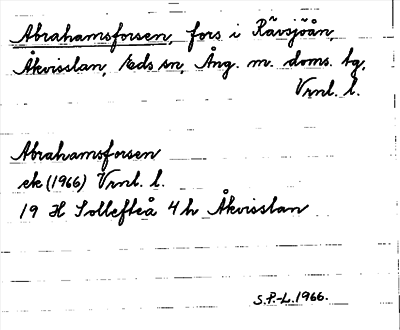 Abrahamsforsen, fors i Rävsjöån,
Åkvisslan, Eds sn, Ång. m. doms. bg,
Vrnl. l.
Abrahamsforsen
ek (1966) Vrnl. l.
19 H Sollefteå 4 h Åkvisslan
S.P.-L. 1966.